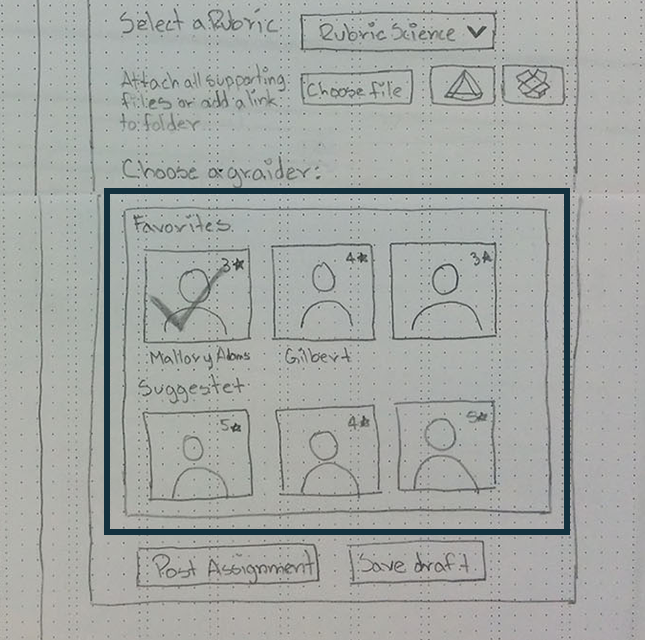 Select a Rubric
Rubric Science
Attach all supporting
files or add a link
to folder
Choose file
Choose a graider:
Favorites
3★ 4★ 3★
Mallory Gilbert
Suggestet
5★ 4★ 5★
Post Assignment Save draft